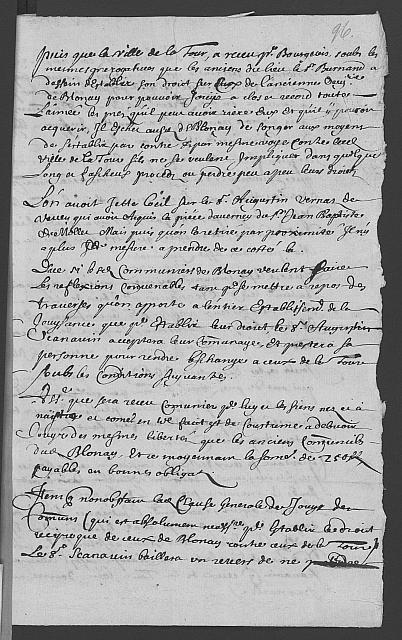 96.
Puis que la ville de la Tour, a receu pr. Bourgeois, soubs les
mesmes prerogatives que les anciens du lieu le Sr. Burnand a
dessein d'establir son droit sur ceux de l'ancienne
de Blonay pour pouvoir a clos et record toutes
l'année les prés qu'il peut avoir rière eux et qu'il pourroit
acquerir. Il eschet aussy à Blonay de songer aux moyens
de s'establir par contre et par mesme voye contre lad.
ville de la Tour s'ils ne se veulent Impliquer dans quelque
long et fascheux procés ou perdre peu a peu leurs droits
L'on avoit Jetté l'œil sur le Sr. Augustin Vernas de
Vevey qui avoit acquis la piece d'averney du Sr. Jean Baptiste
Mais puis qu'on la retire par proximité Il n'y
a plus de mesure a prendre de ce costé la.
Que si les Communiers de Blonay veulent faire
les reflexions convenables tant pr. se mettre a repos des
traverses qu'on apporte a l'entier Establissemt. de la
Jouissance que pr. Establir leur droict le Sr. Augustin
Jeanavin acceptera leur comunage, et prestera sa
personne pour rendre l'eschange a ceux de la Tour
soubs les conditions suyvantes.
que sera receu Comunier pr. luy et les siens nez et a
naistre et comē en tel faict est de coustume a debvoir
Jouyr des mesmes libertés que les anciens Comuniers
dud. Blonay. Et ce moyennant la somē de 250
payables en bonnes obligaō.
Item nonobstant lad. Clause Generale de Jouyr des
Comuns (qui est absolument pr. Establir led. droict
recyproque de ceux de Blonay contre ceux de la Tour)
Le Sr. Jeanavin baillera un revers de ne